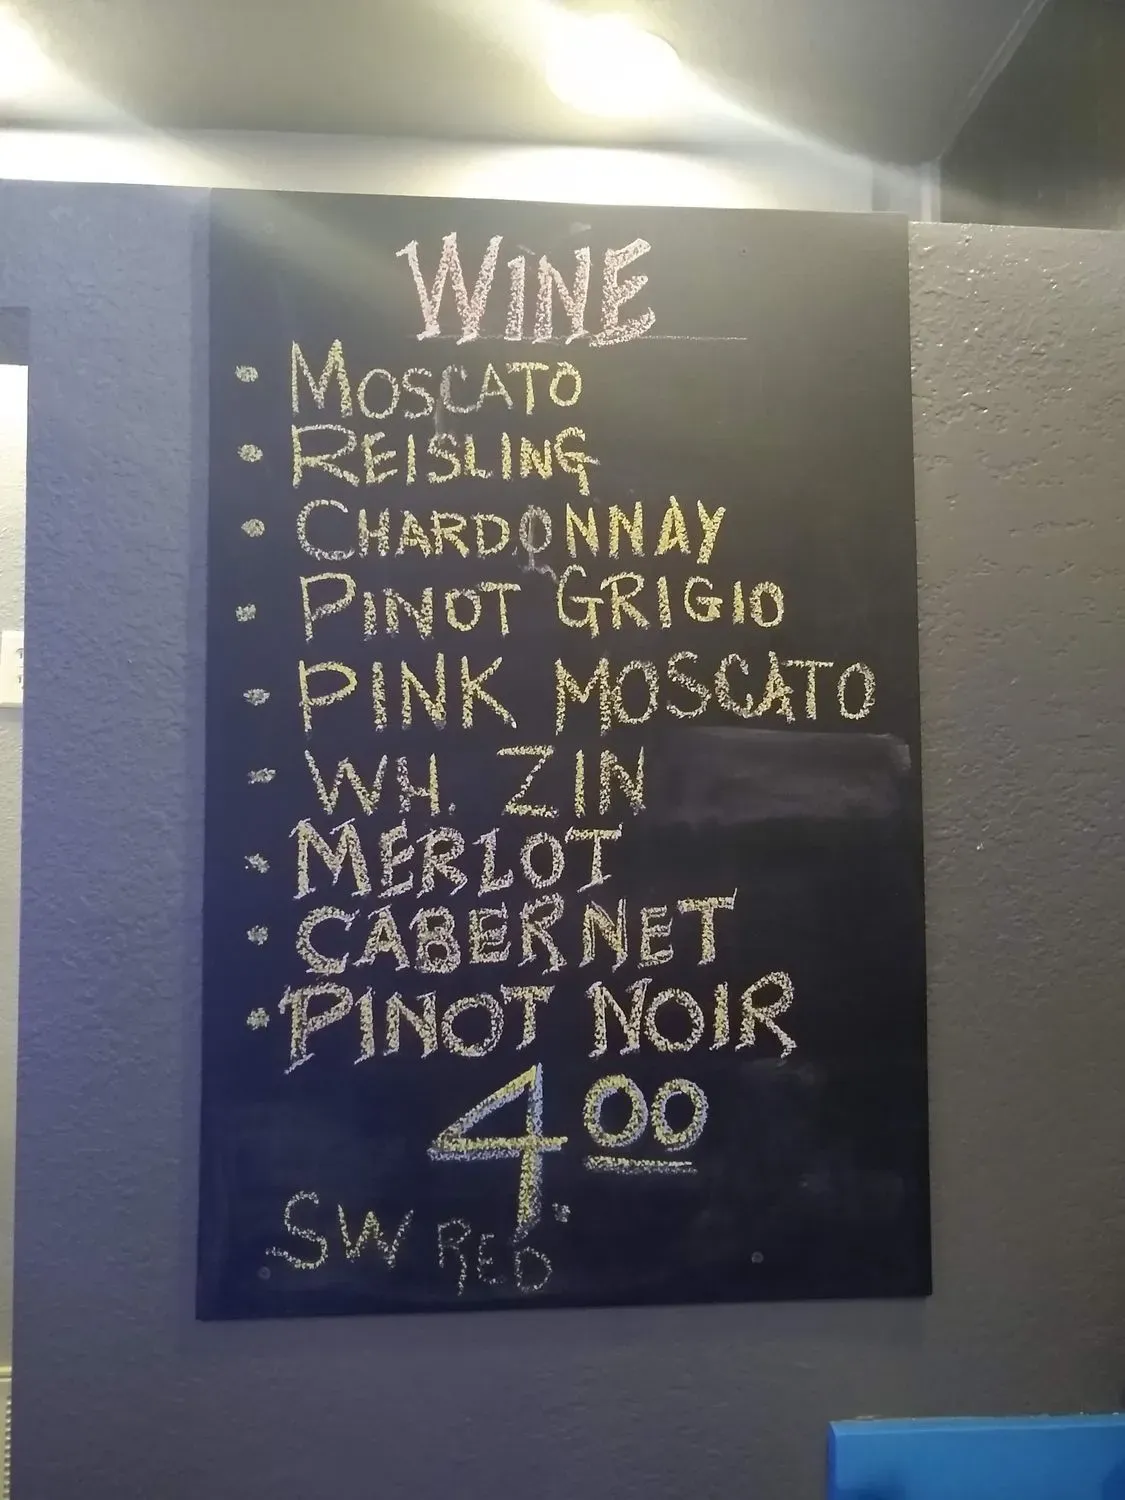 WINE
• MOSCATO
• REISLING
• CHARDONNAY
• PINOT GRIGIO
• PINK MOSCATO
• WH. ZIN
• MERLOT
• CABERNET
• PINOT NOIR
4.00
SW RED